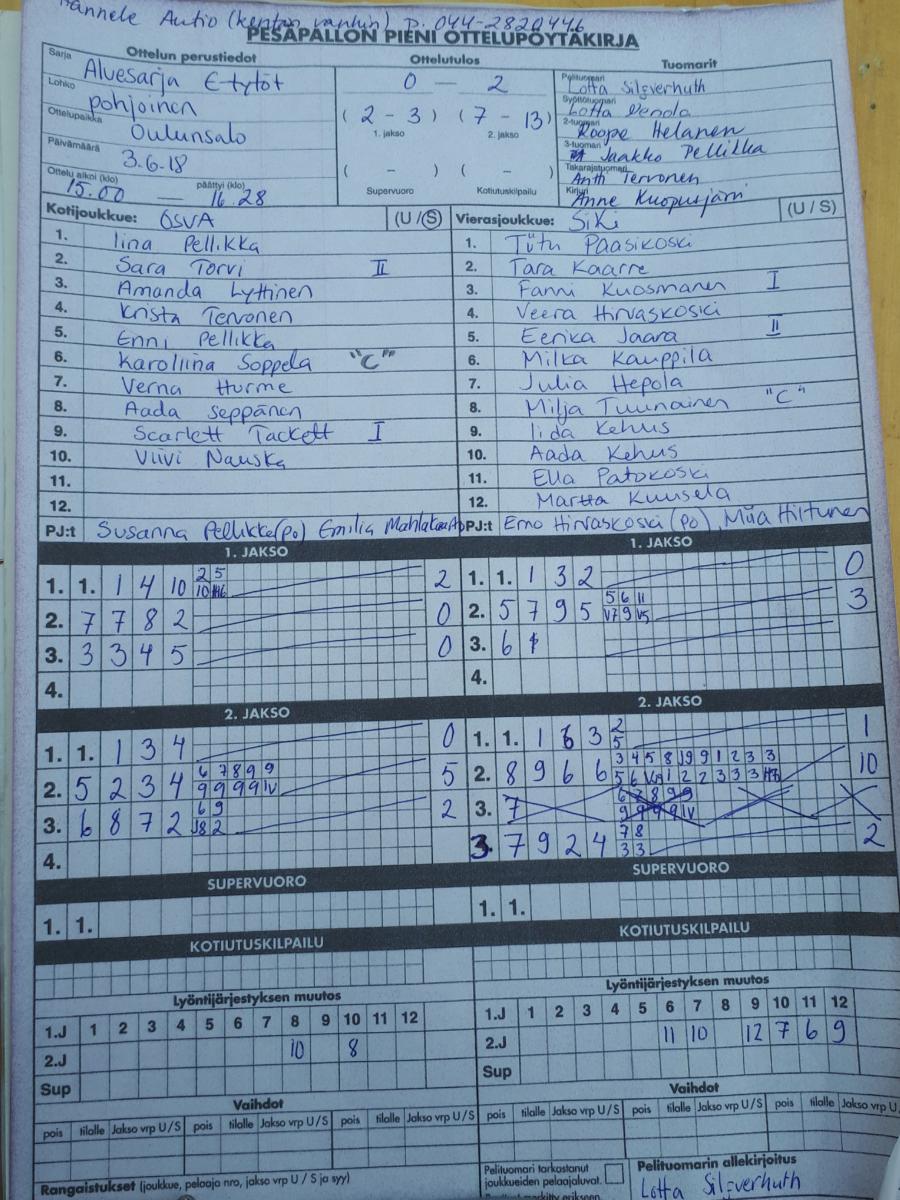 Hannele Autio (kentän vanhin) p. 044-2820446
PESÄPALLON PIENI OTTELUPÖYTÄKIRJA
Ottelun perustiedot Ottelutulos Tuomarit
Sarja Aluesarja E-tytöt
Lohko pohjoinen
Ottelupaikka Oulunsalo
Päivämäärä 3.6.18
Ottelu alkoi (klo) päättyi (klo)
15.00 — 16.28
0 — 2
(2 - 3) (7 - 13)
1. jakso 2. jakso
( - ) ( - )
Supervuoro Kotiutuskilpailu
Pelituomari Lotta Silfverhuth
Syöttötuomari Lotta Venola
2-tuomari Roope Helanen
3-tuomari Jaakko Pellikka
Takarajatuomari Antti Tervonen
Kirjuri Anne Kuopusjärvi
Kotijoukkue: OSVA (U / S)
1. Iina Pellikka
2. Sara Torvi II
3. Amanda Lyttinen
4. Krista Tervonen
5. Enni Pellikka
6. Karoliina Soppela "C"
7. Verna Hurme
8. Aada Seppänen
9. Scarlett Tackett I
10. Viivi Nauska
11.
12.
PJ:t Susanna Pellikka (po) Emilia
Vierasjoukkue: SiKi (U / S)
1. Tütu Paasikoski
2. Tara Kaarre
3. Fanni Kuosmanen I
4. Veera Hirvaskoski
5. Eerika Jaara II
6. Milka Kauppila
7. Julia Hepola
8. Milja Tuunainen "C"
9. Iida Kehus
10. Aada Kehus
11. Ella Patokoski
12. Martta Kuusela
PJ:t Erno Hirvaskoski (po), Miia Hiltunen
1. JAKSO
1. 1. 1 4 10 2 5 2
10 H6
2. 7 7 8 2 0
3. 3 3 4 5 0
4.
1. JAKSO
1. 1. 1 3 2 0
2. 5 7 9 5 5 6 11 3
V7 9 V5
3. 6
4.
2. JAKSO
1. 1. 1 3 4 0
2. 5 2 3 4 6 7 8 9 9 5
9 9 9 9 IV
3. 6 8 7 2 6 9 2
J8 2
4.
2. JAKSO
1. 1. 1 6 3 2 1
5
2. 8 9 6 6 3 4 5 8 J9 9 1 2 3 3 10
5 6 V6 9 1 2 2 3 3 3 H7
3. 7 6 7 8 9 9
9 9 9 9 IV
3. 7 9 2 4 7 8 2
3 3
SUPERVUORO
1. 1.
SUPERVUORO
1. 1.
KOTIUTUSKILPAILU
KOTIUTUSKILPAILU
Lyöntijärjestyksen muutos
1.J 1 2 3 4 5 6 7 8 9 10 11 12
2.J 10 8
Sup
Lyöntijärjestyksen muutos
1.J 1 2 3 4 5 6 7 8 9 10 11 12
2.J 11 10 12 7 6 9
Sup
Vaihdot
pois tilalle Jakso vrp U / S pois tilalle Jakso vrp U / S pois tilalle Jakso vrp U / S
Vaihdot
pois tilalle Jakso vrp U / S pois tilalle Jakso vrp U / S pois tilalle Jakso vrp U
Rangaistukset (joukkue, pelaaja nro, jakso vrp U / S ja syy)
Pelituomari tarkastanut
joukkueiden pelaajaluvat.
Pelituomarin allekirjoitus
Lotta Silfverhuth